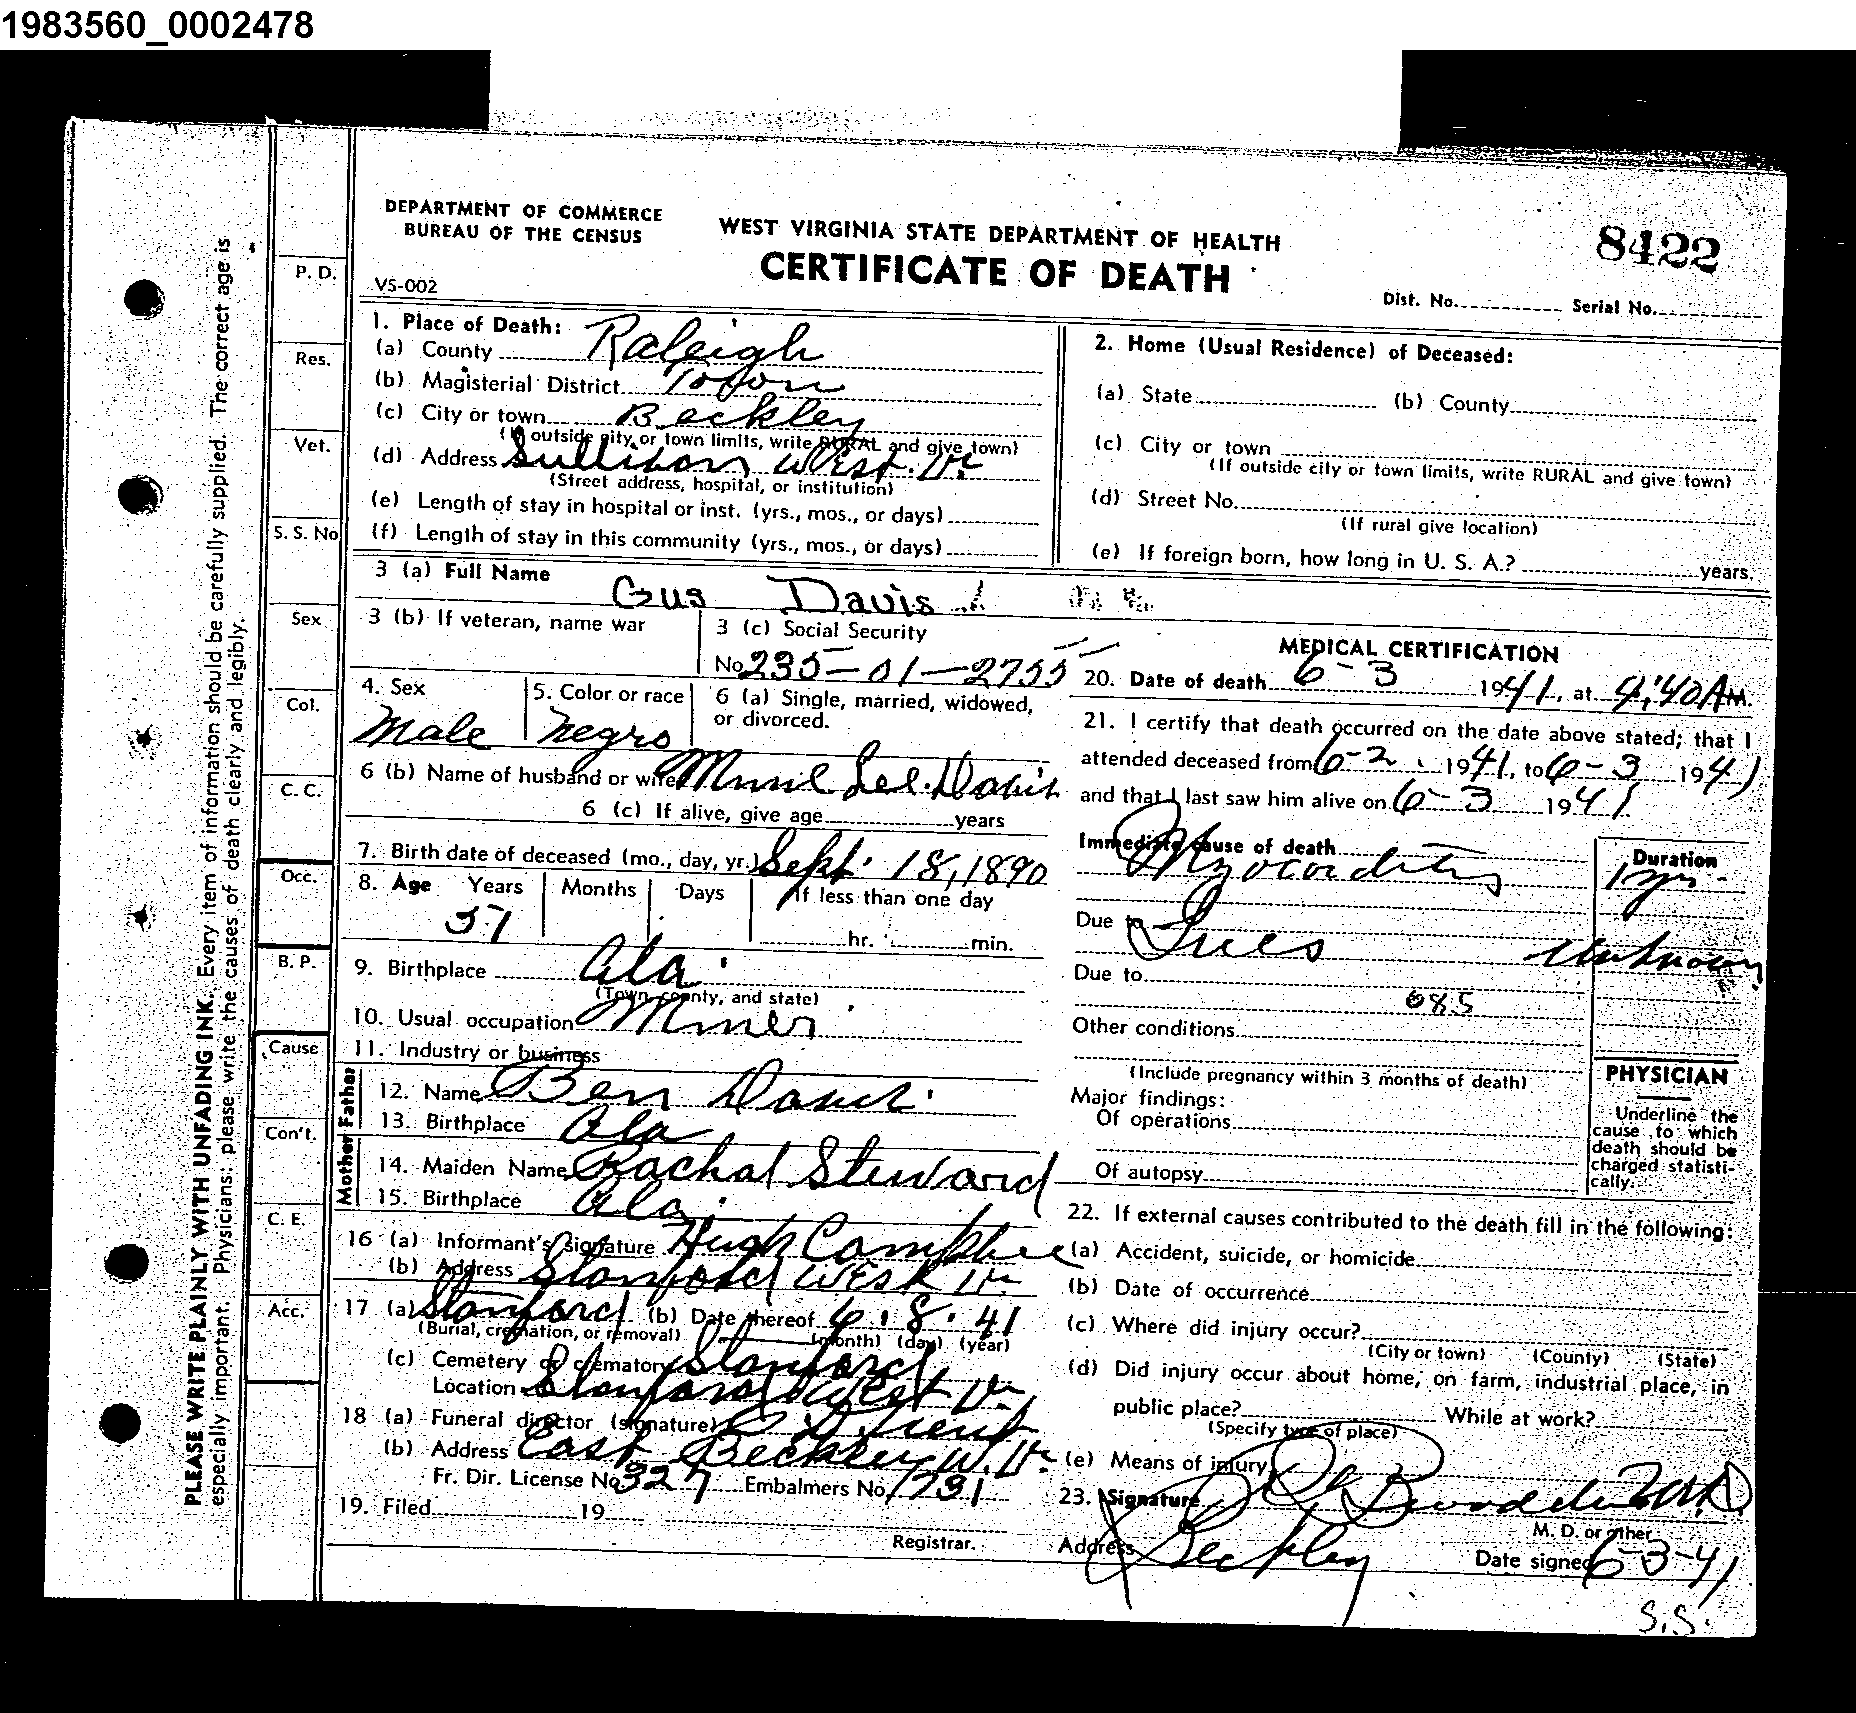 1983560_0002478
DEPARTMENT OF COMMERCE
BUREAU OF THE CENSUS
WEST VIRGINIA STATE DEPARTMENT OF HEALTH
CERTIFICATE OF DEATH
8422
VS-002
Dist. No. Serial No.
1. Place of Death:
(a) County Raleigh
(b) Magisterial District Town
(c) City or town Beckley
(If outside city or town limits, write RURAL and give town)
(d) Address Sullivan West. Va
(Street address, hospital, or institution)
(e) Length of stay in hospital or inst. (yrs., mos., or days)
(f) Length of stay in this community (yrs., mos., or days)
2. Home (Usual Residence) of Deceased:
(a) State (b) County
(c) City or town
(If outside city or town limits, write RURAL and give town)
(d) Street No.
(If rural give location)
(e) If foreign born, how long in U. S. A.? years.
3 (a) Full Name Gus Davis
3 (b) If veteran, name war
3 (c) Social Security
No. 235-01-2755
4. Sex Male
5. Color or race Negro
6 (a) Single, married, widowed, or divorced.
6 (b) Name of husband or wife Lee Davis
6 (c) If alive, give age years
7. Birth date of deceased (mo., day, yr.) Sept. 18, 1890
8. Age Years Months Days If less than one day
51 hr. min.
9. Birthplace Ala.
(Town, county, and state)
10. Usual occupation Miner
11. Industry or business
Father
12. Name Ben Davis
13. Birthplace Ala
Mother
14. Maiden Name Rachal Steward
15. Birthplace Ala.
16 (a) Informant's signature Hugh
(b) Address Stanford West Va
17 (a) Stanford (b) Date thereof 6.8.41
(Burial, cremation, or removal) (month) (day) (year)
(c) Cemetery or crematory Stanford
Location Stanford West Va
18 (a) Funeral director (signature)
(b) Address East Beckley W. Va
Fr. Dir. License No. 327 Embalmers No. 1731
19. Filed 19
Registrar.
MEDICAL CERTIFICATION
20. Date of death 6-3 1941, at 4:40 A M.
21. I certify that death occurred on the date above stated; that I
attended deceased from 6-2, 1941, to 6-3 1941
and that I last saw him alive on 6-3 1941
Immediate cause of death
Myocarditis
Duration
1 yr.
Due to Lues unknown
Due to
085
Other conditions
(Include pregnancy within 3 months of death)
Major findings:
Of operations
Of autopsy
PHYSICIAN
Underline the
cause to which
death should be
charged statisti-
cally.
22. If external causes contributed to the death fill in the following:
(a) Accident, suicide, or homicide
(b) Date of occurrence
(c) Where did injury occur?
(City or town) (County) (State)
(d) Did injury occur about home, on farm, industrial place, in
public place? While at work?
(Specify type of place)
(e) Means of injury
23. Signature M.D.
M. D. or other
Address Beckley Date signed 6-3-41
S.S.
P. D.
Res.
Vet.
S. S. No
Sex
Col.
C. C.
Occ.
B. P.
Cause
Con't.
C. E.
Acc.
PLEASE WRITE PLAINLY WITH UNFADING INK. Every item of information should be carefully supplied. The correct age is
especially important. Physicians: please write the causes of death clearly and legibly.